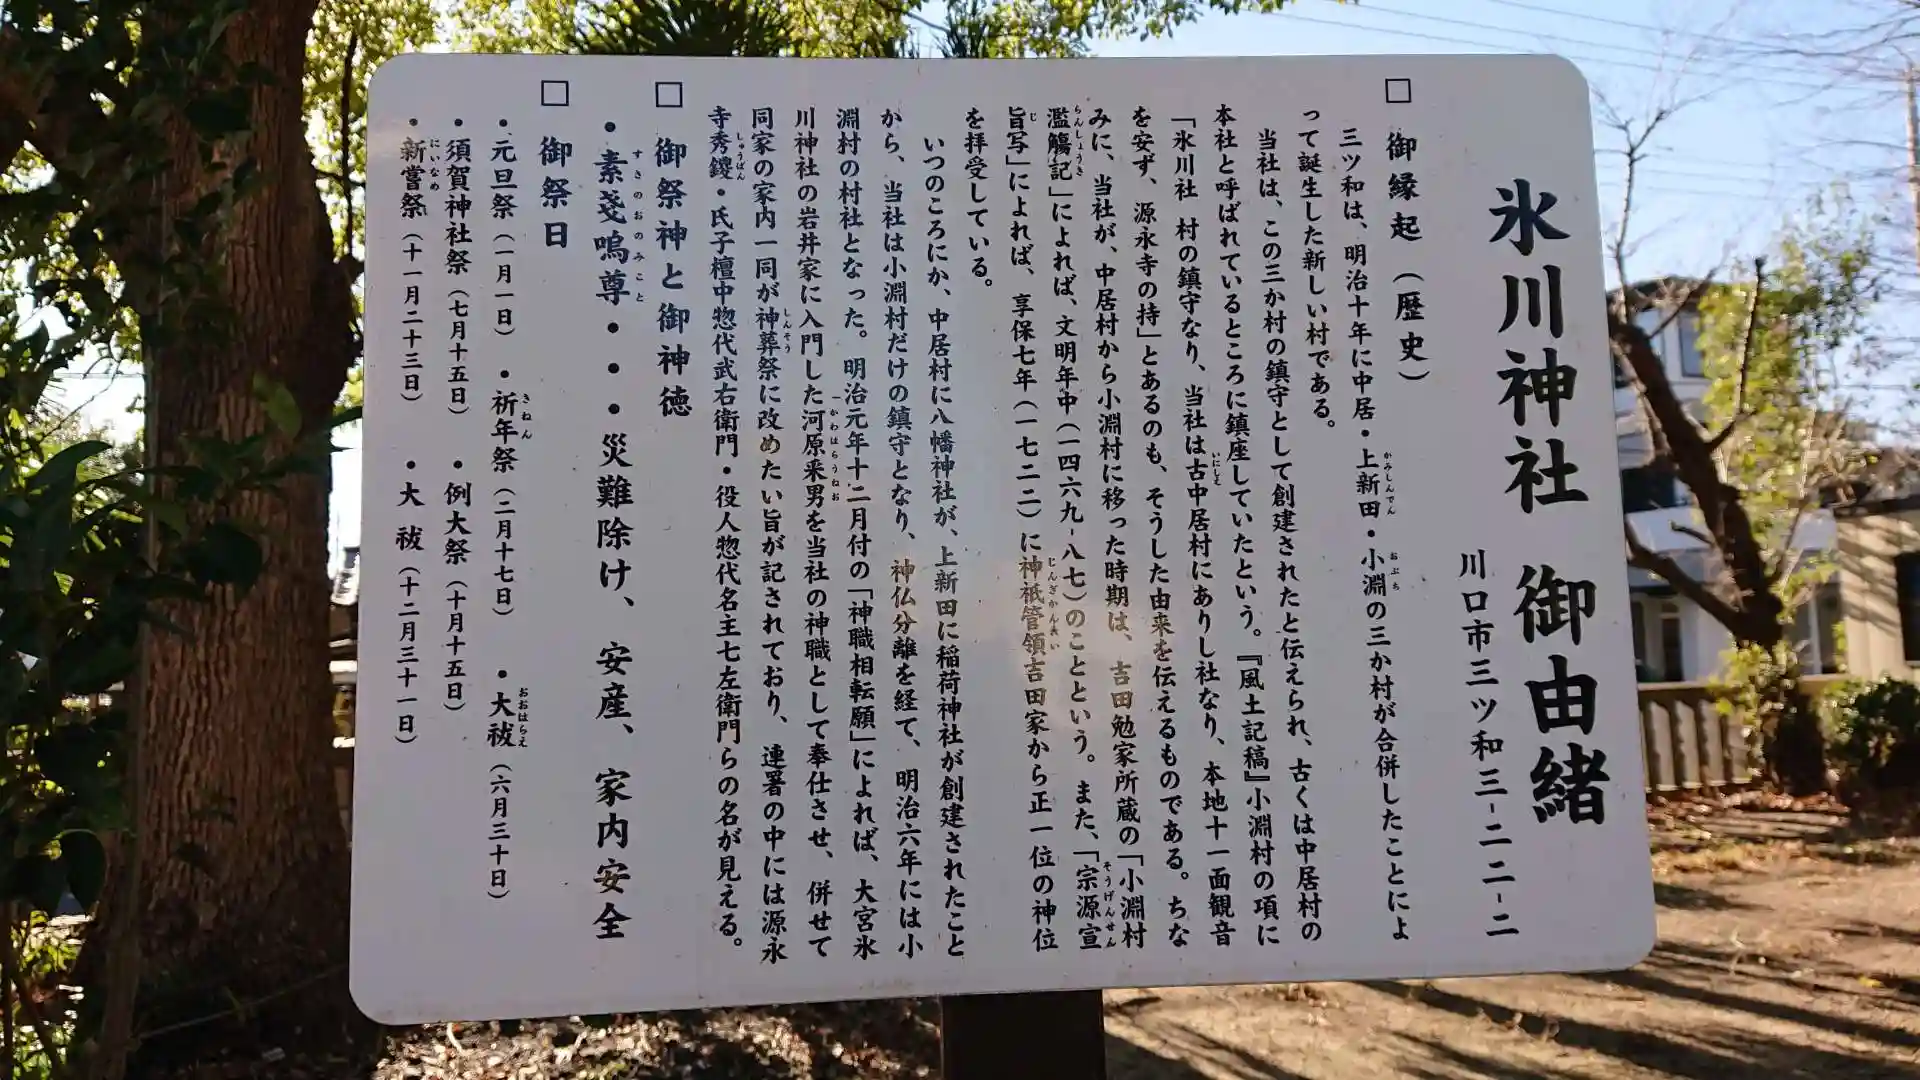 氷川神社 御由緒
川口市三ツ和三-二二-二
□ 御縁起（歴史）
三ツ和は、明治十年に中居・上新田・小淵の三か村が合併したことによ
かみしんでん
おぶち
って誕生した新しい村である。
当社は、この三か村の鎮守として創建されたと伝えられ、古くは中居村の
本社と呼ばれているところに鎮座していたという。『風土記稿』小淵村の項に
「氷川社 村の鎮守なり、当社は古中居村にありし社なり、本地十一面観音
いにしえ
を安ず、源永寺の持」とあるのも、そうした由来を伝えるものである。ちな
みに、当社が、中居村から小淵村に移った時期は、吉田勉家所蔵の「小淵村
濫觴記」によれば、文明年中（一四六九-八七）のことという。また、「宗源宣
らんしょうき
そうげんせん
旨写」によれば、享保七年（一七二二）に神祇管領吉田家から正一位の神位
じ
じんぎかんれい
を拝受している。
いつのころにか、中居村に八幡神社が、上新田に稲荷神社が創建されたこと
から、当社は小淵村だけの鎮守となり、神仏分離を経て、明治六年には小
淵村の村社となった。明治元年十二月付の「神職相転願」によれば、大宮氷
川神社の岩井家に入門した河原来男を当社の神職として奉仕させ、併せて
かわはらうねお
同家の家内一同が神葬祭に改めたい旨が記されており、連署の中には源永
しんそう
寺秀鑁・氏子檀中惣代武右衛門・役人惣代名主七左衛門らの名が見える。
しゅうばん
□ 御祭神と御神徳
・素戔嗚尊・・・災難除け、安産、家内安全
すさのおのみこと
□ 御祭日
・元旦祭（一月一日） ・祈年祭（二月十七日） ・大祓（六月三十日）
きねん
おおはらえ
・須賀神社祭（七月十五日） ・例大祭（十月十五日）
・新嘗祭（十一月二十三日） ・大祓（十二月三十一日）
にいなめ